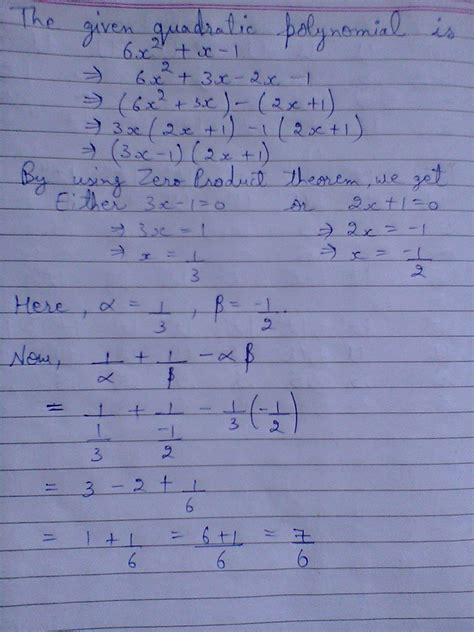 The given quadratic polynomial is
6x² + x - 1
⇒ 6x² + 3x - 2x - 1
⇒ (6x² + 3x) - (2x + 1)
⇒ 3x (2x + 1) - 1 (2x + 1)
⇒ (3x - 1) (2x + 1)
By using Zero Product theorem, we get
Either 3x - 1 = 0 or 2x + 1 = 0
⇒ 3x = 1 ⇒ 2x = -1
⇒ x = 1/3 ⇒ x = -1/2
Here, α = 1/3 , β = -1/2.
Now, 1/α + 1/β - αβ
= 1/(1/3) + 1/(-1/2) - 1/3 (-1/2)
= 3 - 2 + 1/6
= 1 + 1/6 = (6+1)/6 = 7/6